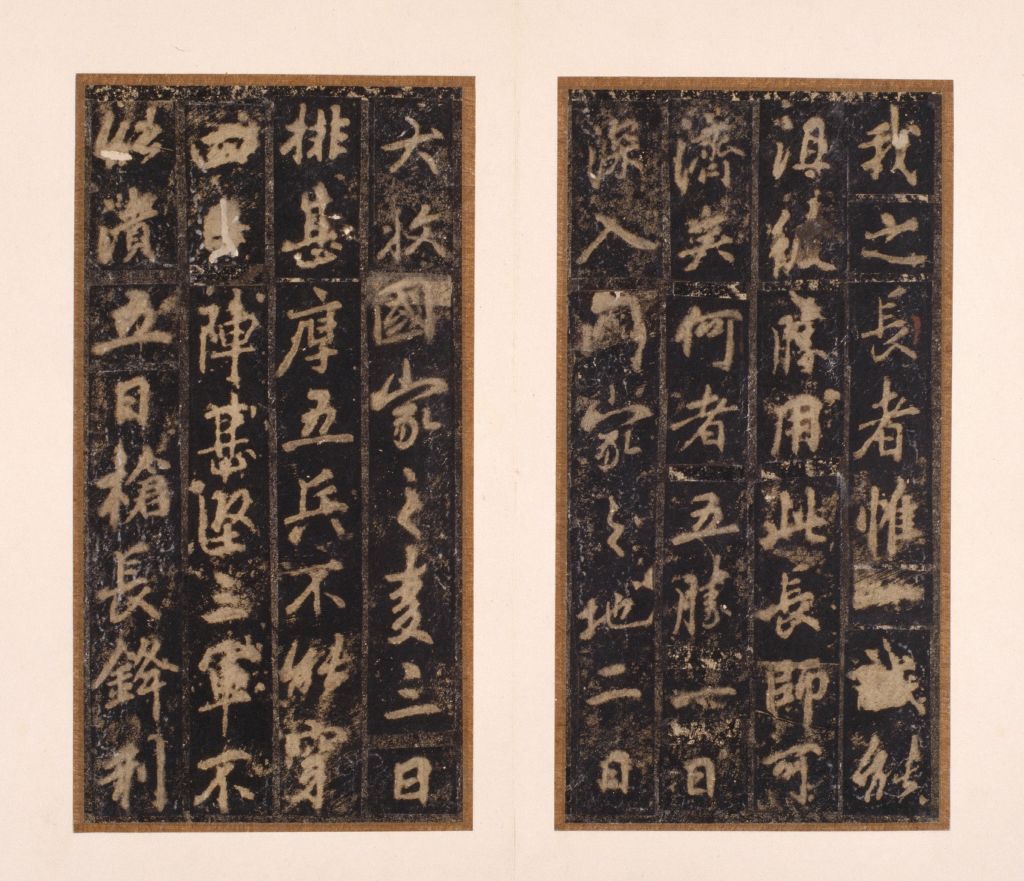 我之長者惟一誠能
沮彼勝用此長師可
濟矣何者五勝一曰
深入國家之地二曰
大收國家之麦三曰
排甚厚五兵不能穿
四曰陣甚堅三軍不
能潰五曰槍長鋒利